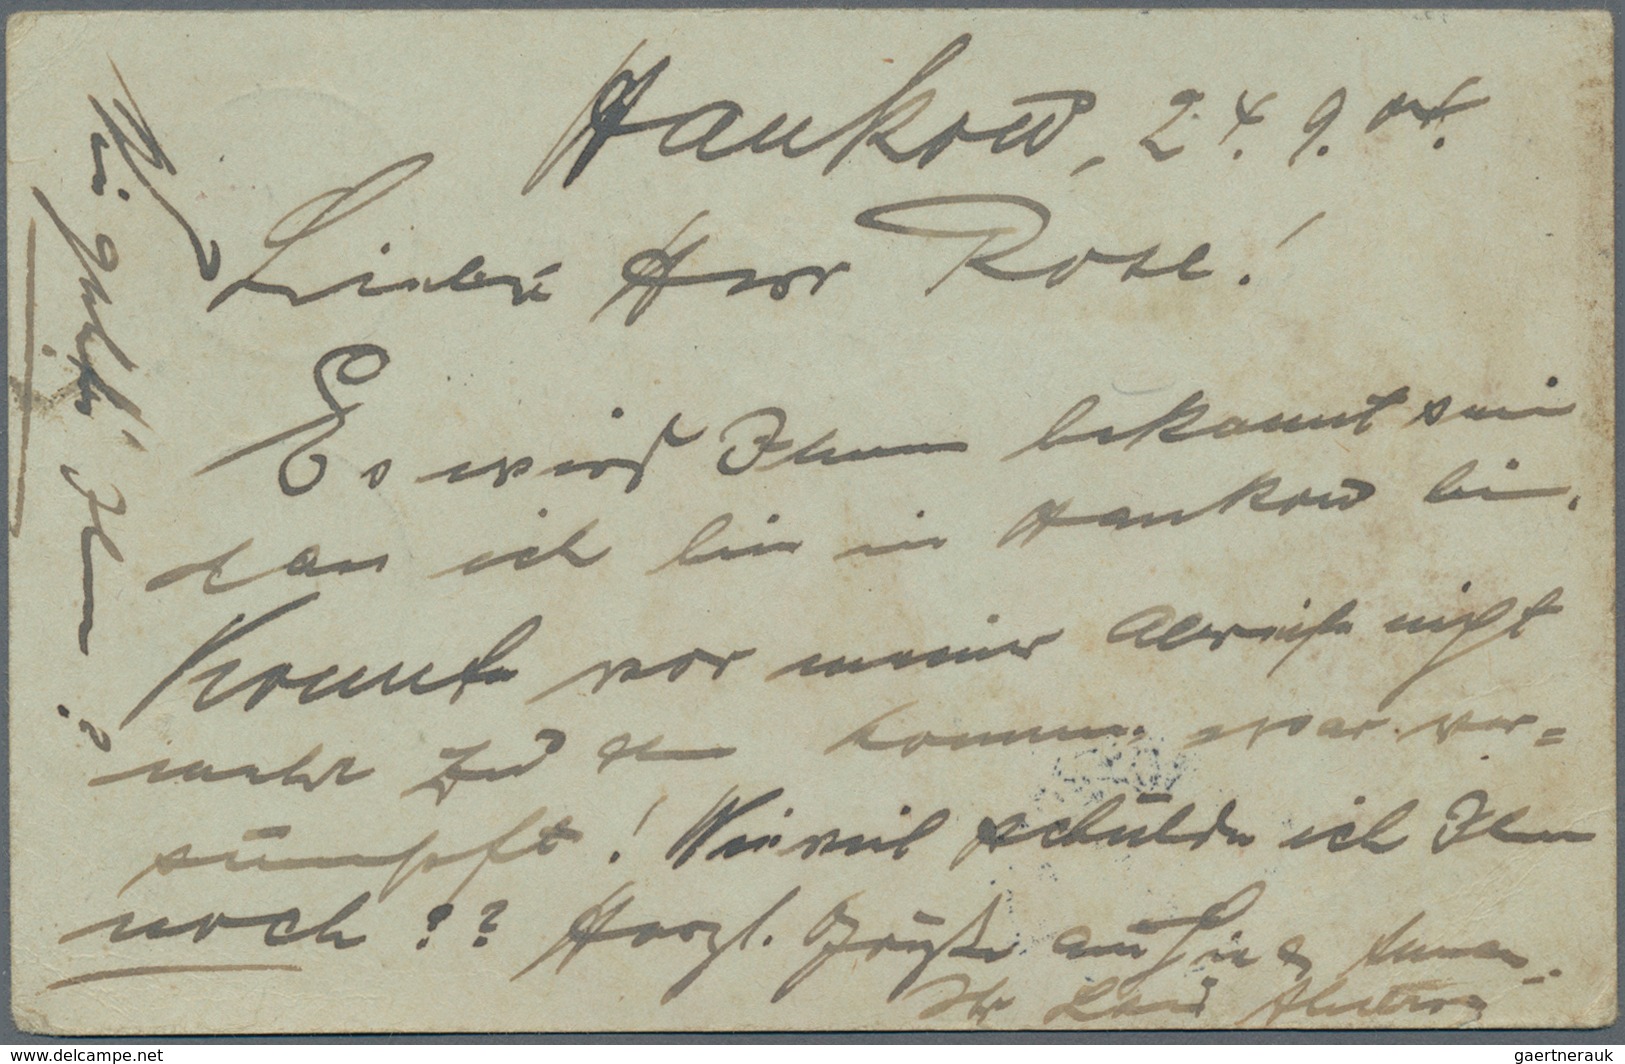 Hankow, 24. 9. 04.
Lieber Herr Rose!
Es wird Ihnen bekannt sein
dass ich hier in Hankow bin.
Konnte vor meiner Abreise nicht
mehr zu Ihnen kommen war ver=
sumpft! Wieviel schulde ich Ihnen
noch?? Herzl. Grüße auch an
Ihr
Wie geht es Ihnen?
delcampe.net
gaertnerauk